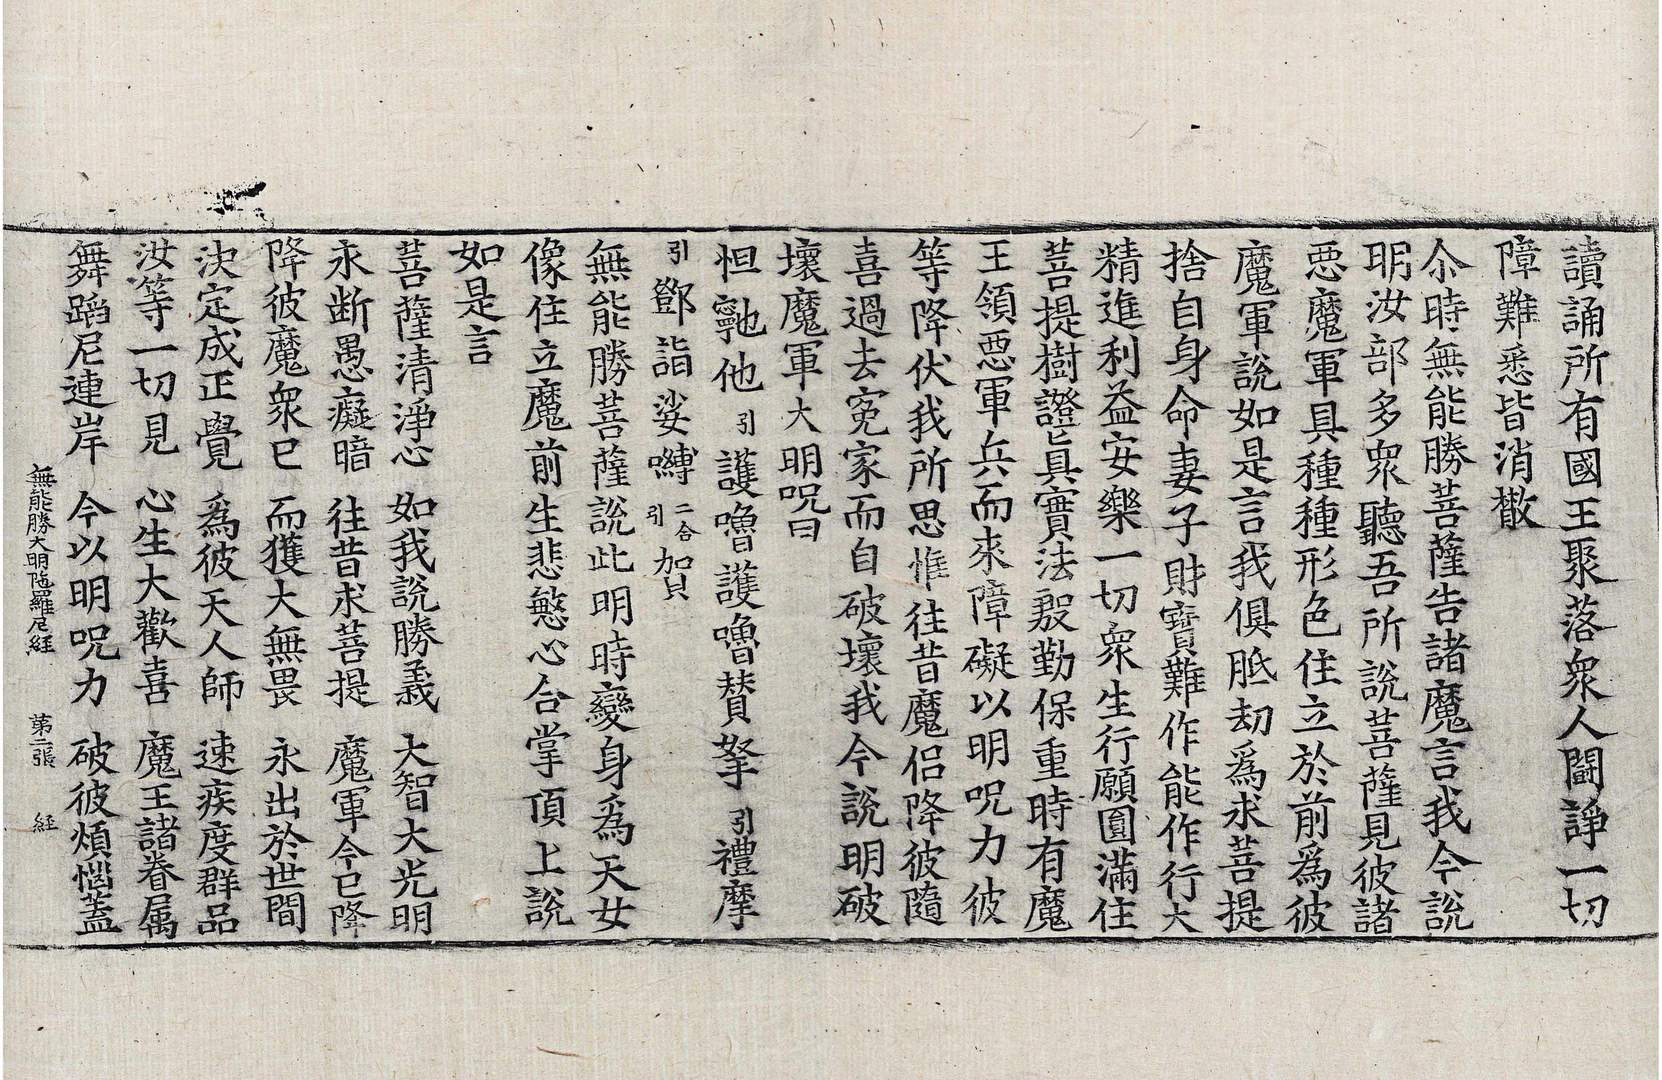 讀誦所有國王聚落衆人鬪諍一切
障難悉皆消散
尒時無能勝菩薩告諸魔言我今說
明汝部多衆聽吾所說菩薩見彼諸
惡魔軍具種種形色住立於前爲彼
魔軍說如是言我俱胝劫爲求菩提
捨自身命妻子財寶難作能作行大
精進利益安樂一切衆生行願圓滿住
菩提樹證眞實法慇勤保重時有魔
王領惡軍兵而來障礙以明呪力彼
等降伏我所思惟往昔魔侶降彼隨
喜過去寃家而自破壞我今說明破
壞魔軍大明呪曰
怛寧他他引護嚕護嚕賛拏引禮摩
引鄧詣娑嚩二合引加貝
無能勝菩薩說此明時變身爲天女
像住立魔前生悲慜心合掌頂上說
如是言
菩薩清淨心 如我說勝義 大智大光明
永断愚癡暗 往昔求菩提 魔軍今已降
降彼魔衆已 而獲大無畏 永出於世間
決定成正覺 爲彼天人師 速疾度群品
汝等一切見 心生大歡喜 魔王諸眷属
舞蹈尼連岸 今以明呪力 破彼煩惱蓋
無能勝大明陁羅尼経 第二張 経